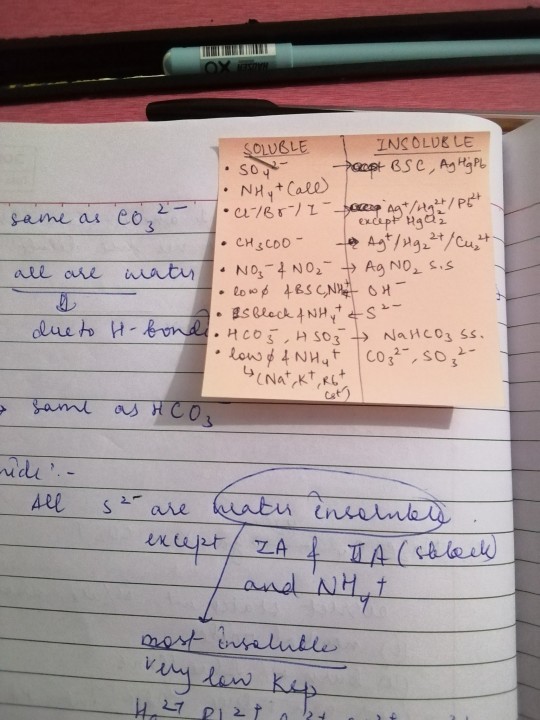 XO
SOLUBLE INSOLUBLE
• SO4²⁻ → except BSC, AgHgPb
• NH4⁺ (all)
• Cl⁻/Br⁻/I⁻ → Ag⁺/Hg2²⁺/Pb²⁺
except HgCl2
• CH3COO⁻ → Ag⁺/Hg2²⁺/Cu2²⁺
• NO3⁻ & NO2⁻ → AgNO2 s.s
• low φ & BSC, NH4⁺ ← OH⁻
• S block & NH4⁺ ← S²⁻
• HCO3⁻, HSO3⁻ → NaHCO3 ss.
• low φ & NH4⁺ CO3²⁻, SO3²⁻
↳ (Na⁺, K⁺, Rb⁺
Cs⁺)
same as CO3²⁻
all are water
⇓
due to H-bond
→ same as HCO3⁻
All S²⁻ are water insoluble.
except IA & IIA (sblock)
and NH4⁺
most insoluble
very low Ksp